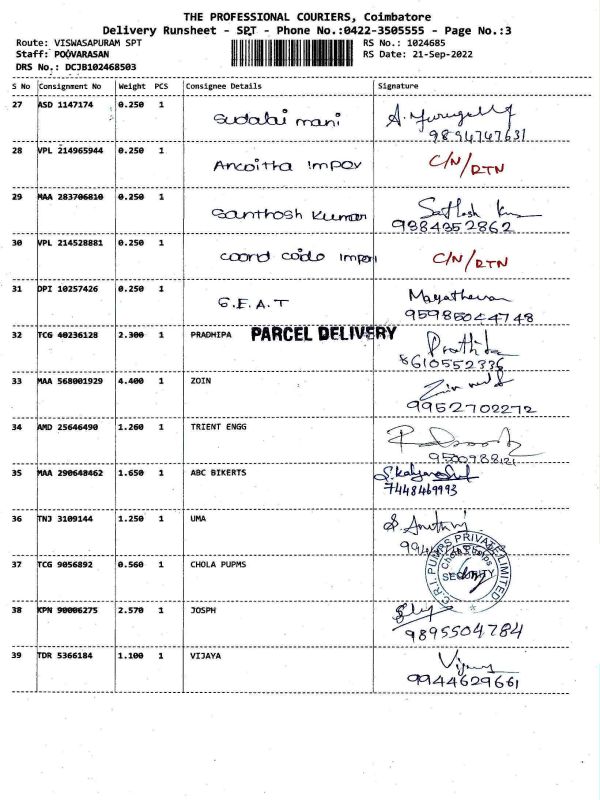 THE PROFESSIONAL COURIERS, Coimbatore
Delivery Runsheet - SPT - Phone No.:0422-3505555 - Page No.:3
Route: VISWASAPURAM SPT RS No.: 1024685
Staff: POOVARASAN RS Date: 21-Sep-2022
DRS No.: DCJB102468503
S No Consignment No Weight PCS Consignee Details Signature
27 ASD 1147174 0.250 1 Sudalai mani
9894747631
28 VPL 214965944 0.250 1 C/N/RTN
29 MAA 283706810 0.250 1 Santhosh Kumar
9384352862
30 VPL 214528881 0.250 1 C/N/RTN
31 DPI 10257426 0.250 1 S.E.A.T
PARCEL DELIVERY
32 TCG 40236128 2.300 1 PRADHIPA
8610552336
33 MAA 568001929 4.400 1 ZOIN
9952702272
34 AMD 25646490 1.260 1 TRIENT ENGG
35 MAA 290648462 1.650 1 ABC BIKERTS
7448469993
36 TNJ 3109144 1.250 1 UMA
37 TCG 9056892 0.560 1 CHOLA PUPMS
C.R.I. PUMPS PRIVATE LIMITED
SECURITY
38 KPN 90006275 2.570 1 JOSPH
9895504784
39 TDR 5366184 1.100 1 VIJAYA
9944629661